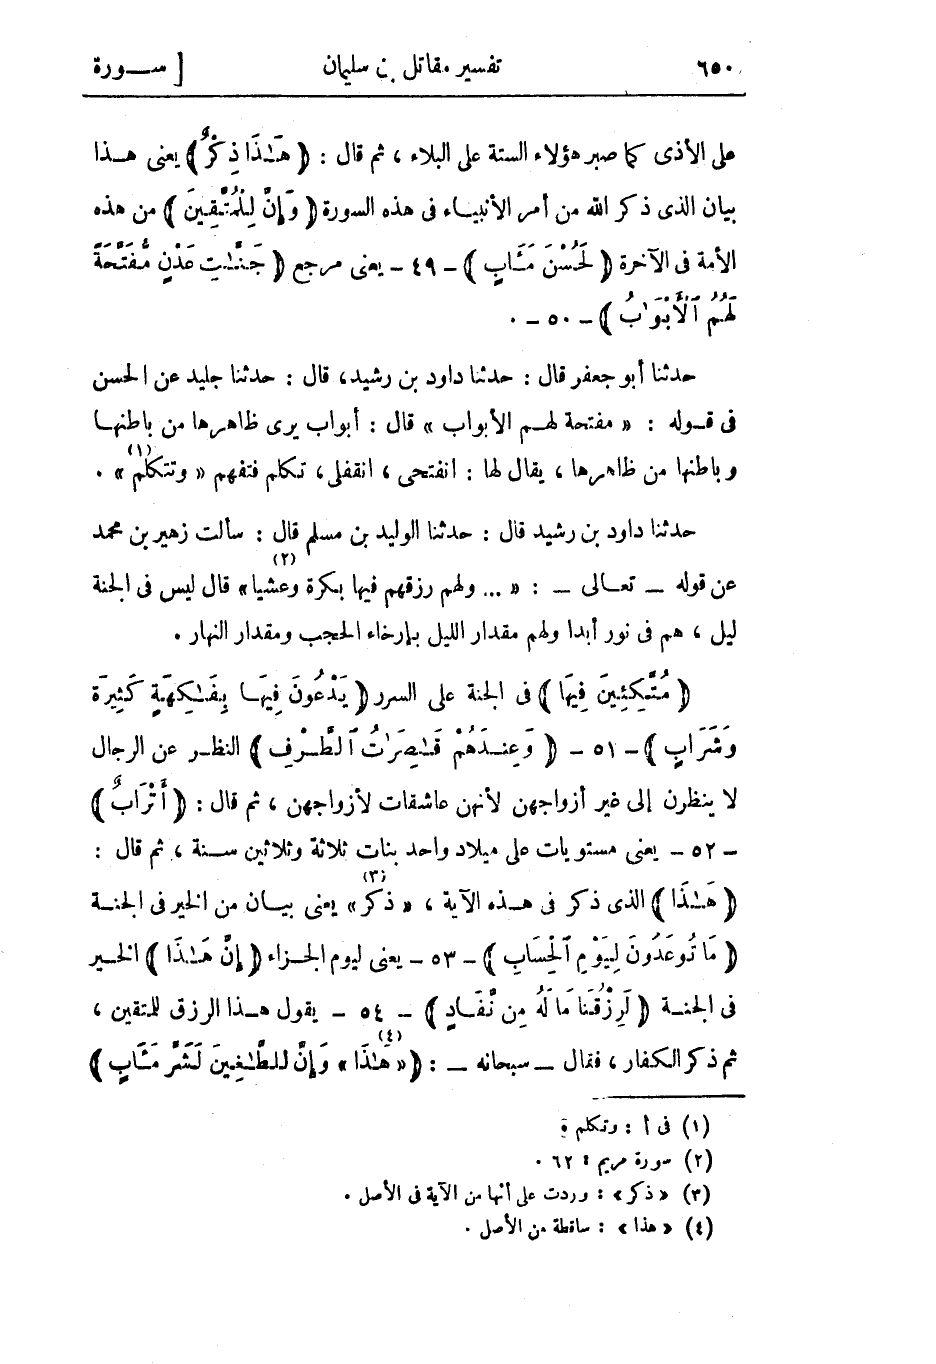 ٦٥٠ تفسير مقاتل بن سليمان [ سـورة
على الأذى كما صبر هؤلاء الستة على البلاء ، ثم قال : ( هَـٰذَا ذِكْرٌ ) يعنى هـذا
بيان الذى ذكر الله من أمر الأنبيـاء فى هذه السورة ( وَإِنَّ لِلْمُتَّقِينَ ) من هذه
الأمة فى الآخرة ( لَحُسْنَ مَـَٔابٍ ) - ٤٩ - يعنى مرجع ( جَنَّـٰتِ عَدْنٍ مُّفَتَّحَةً
لَهُمُ ٱلْأَبْوَٰبُ ) - ٥٠ - .
حدثنا أبو جعفر قال : حدثنا داود بن رشيد، قال : حدثنا جليد عن الحسن
فى قـوله : « مفتحة لهـم الأبواب » قال : أبواب يرى ظاهرها من باطنهـا
وباطنها من ظاهرها ، يقال لها : انفتحى ، انقفلى ، تكلم فتفهم « وتتكلم (١) » .
حدثنا داود بن رشيد قال : حدثنا الوليد بن مسلم قال : سألت زهير بن محمد
عن قوله - تعـالى - : « ... ولهم رزقهم فيها بكرة وعشيا (٢) » قال ليس فى الجنة
ليل ، هم فى نور أبدا ولهم مقدار الليل بإرخاء الحجب ومقدار النهار .
( مُتَّكِئِينَ فِيهَا ) فى الجنة على السرر ( يَدْعُونَ فِيهَـا بِفَـٰكِهَةٍ كَثِيرَةٍ
وَشَرَابٍ ) - ٥١ - ( وَعِنـدَهُمْ قَـٰصِرَٰتُ ٱلطَّـرْفِ ) النظـر عن الرجال
لا ينظرن إلى غير أزواجهن لأنهن عاشقات لأزواجهن ، ثم قال : ( أَتْرَابٌ )
- ٥٢ - يعنى مستويات على ميلاد واحد بنات ثلاثة وثلاثين سـنة ، ثم قال :
( هَـٰذَا ) الذى ذكر فى هـذه الآية ، « ذكر (٣) » يعنى بيـان من الخير فى الجنـة
( مَا تُوعَدُونَ لِيَوْمِ ٱلْحِسَابِ ) - ٥٣ - يعنى ليوم الجـزاء ( إِنَّ هَـٰذَا ) الخـير
فى الجنـة ( لَرِزْقُنَا مَا لَهُ مِن نَّفَـادٍ ) - ٥٤ - يقول هـذا الرزق للمتقين ،
ثم ذكر الكفار ، فقال - سبحانه - : ( « هَـٰذَا (٤) » وَإِنَّ لِلطَّـٰغِينَ لَشَرَّ مَـَٔابٍ )
(١) فى أ : وتكلم
(٢) سورة مريم : ٦٢ .
(٣) « ذكر » : وردت على أنها من الآية فى الأصل .
(٤) « هذا » : ساقطة من الأصل .